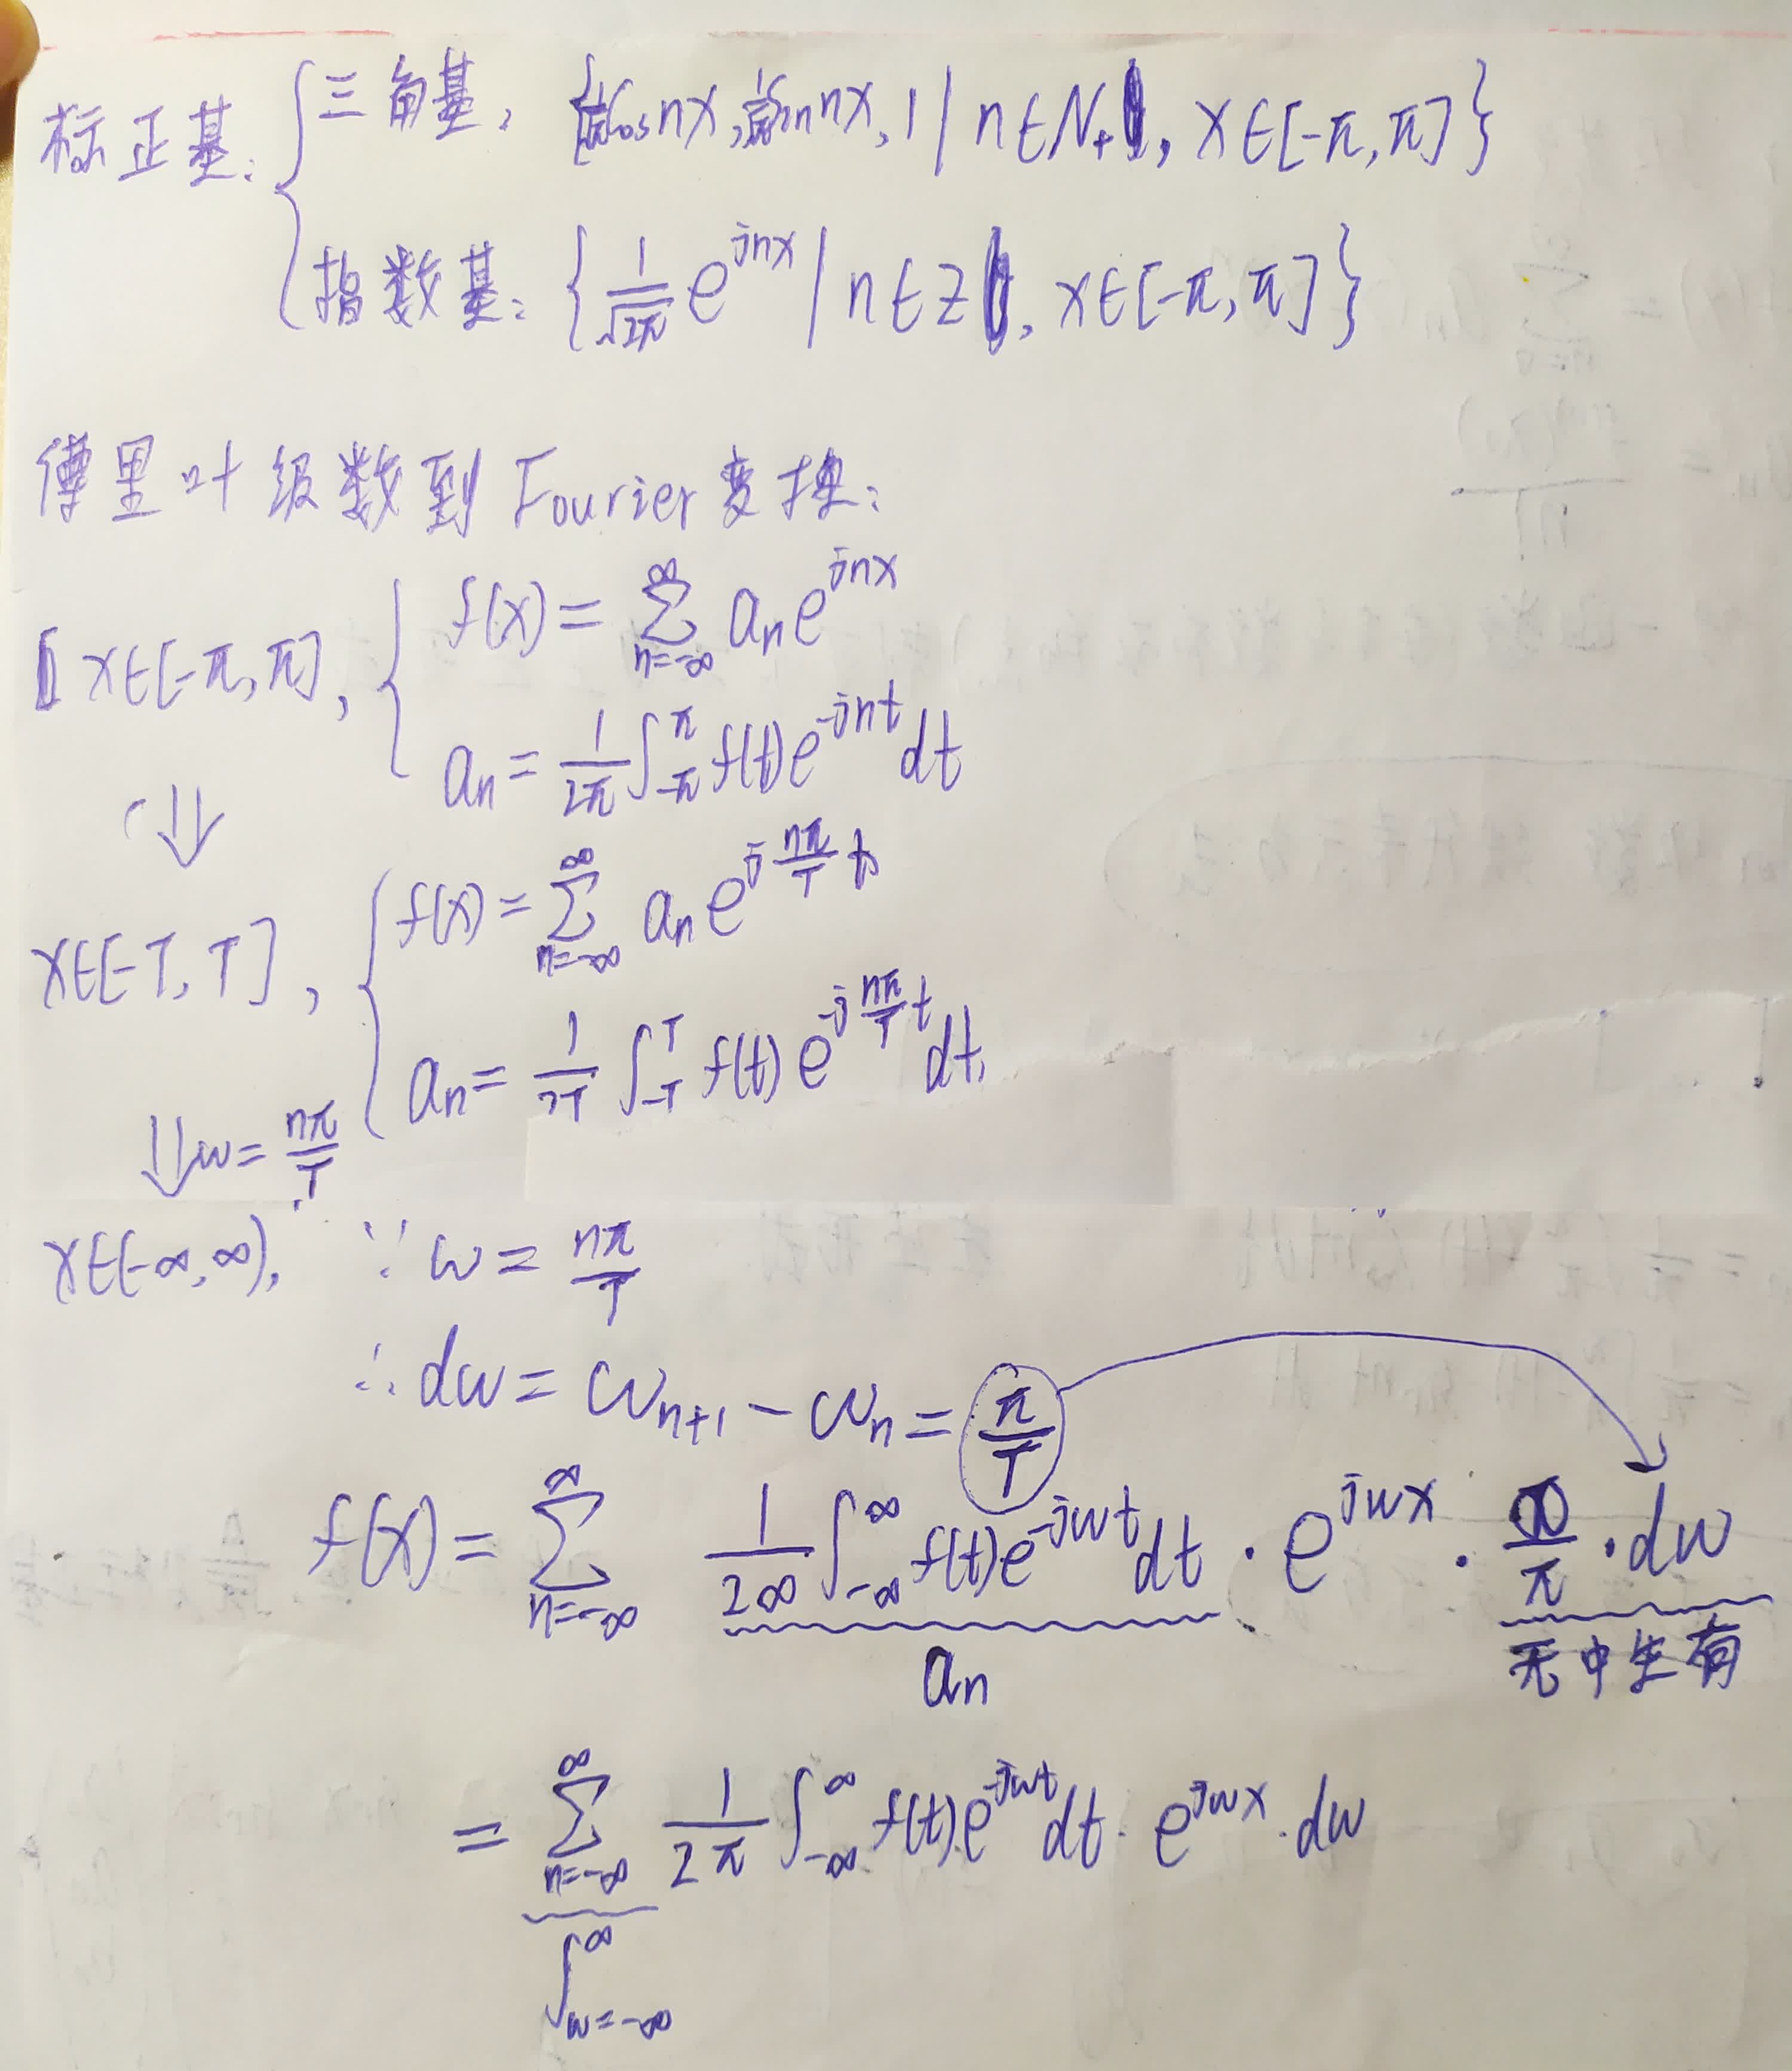 标正基: { 三角基: {cos nx, sin nx, 1 | n∈N₊, x∈[-π, π]}
指数基: {1/√2π e^{jnx} | n∈Z, x∈[-π, π]}
傅里叶级数到Fourier变换:
x∈[-π, π], { f(x) = ∑_{n=-∞}^{∞} aₙe^{jnx}
aₙ = 1/2π ∫_{-π}^{π} f(t)e^{-jnt}dt
⇓
x∈[-T, T], { f(x) = ∑_{n=-∞}^{∞} aₙe^{j nπ/T}
aₙ = 1/2T ∫_{-T}^{T} f(t)e^{-j nπ/T t}dt,
⇓ w = nπ/T
x∈(-∞, ∞), ∵ w = nπ/T
∴ dw = w_{n+1} - wₙ = π/T
f(x) = ∑_{n=-∞}^{∞} 1/2∞ ∫_{-∞}^{∞} f(t)e^{-jwt}dt · e^{jwx} · ∞/π · dw
aₙ 无中生有
= ∑_{n=-∞}^{∞} 1/2π ∫_{-∞}^{∞} f(t)e^{-jwt}dt · e^{jwx} · dw
∫_{w=-∞}^{∞}